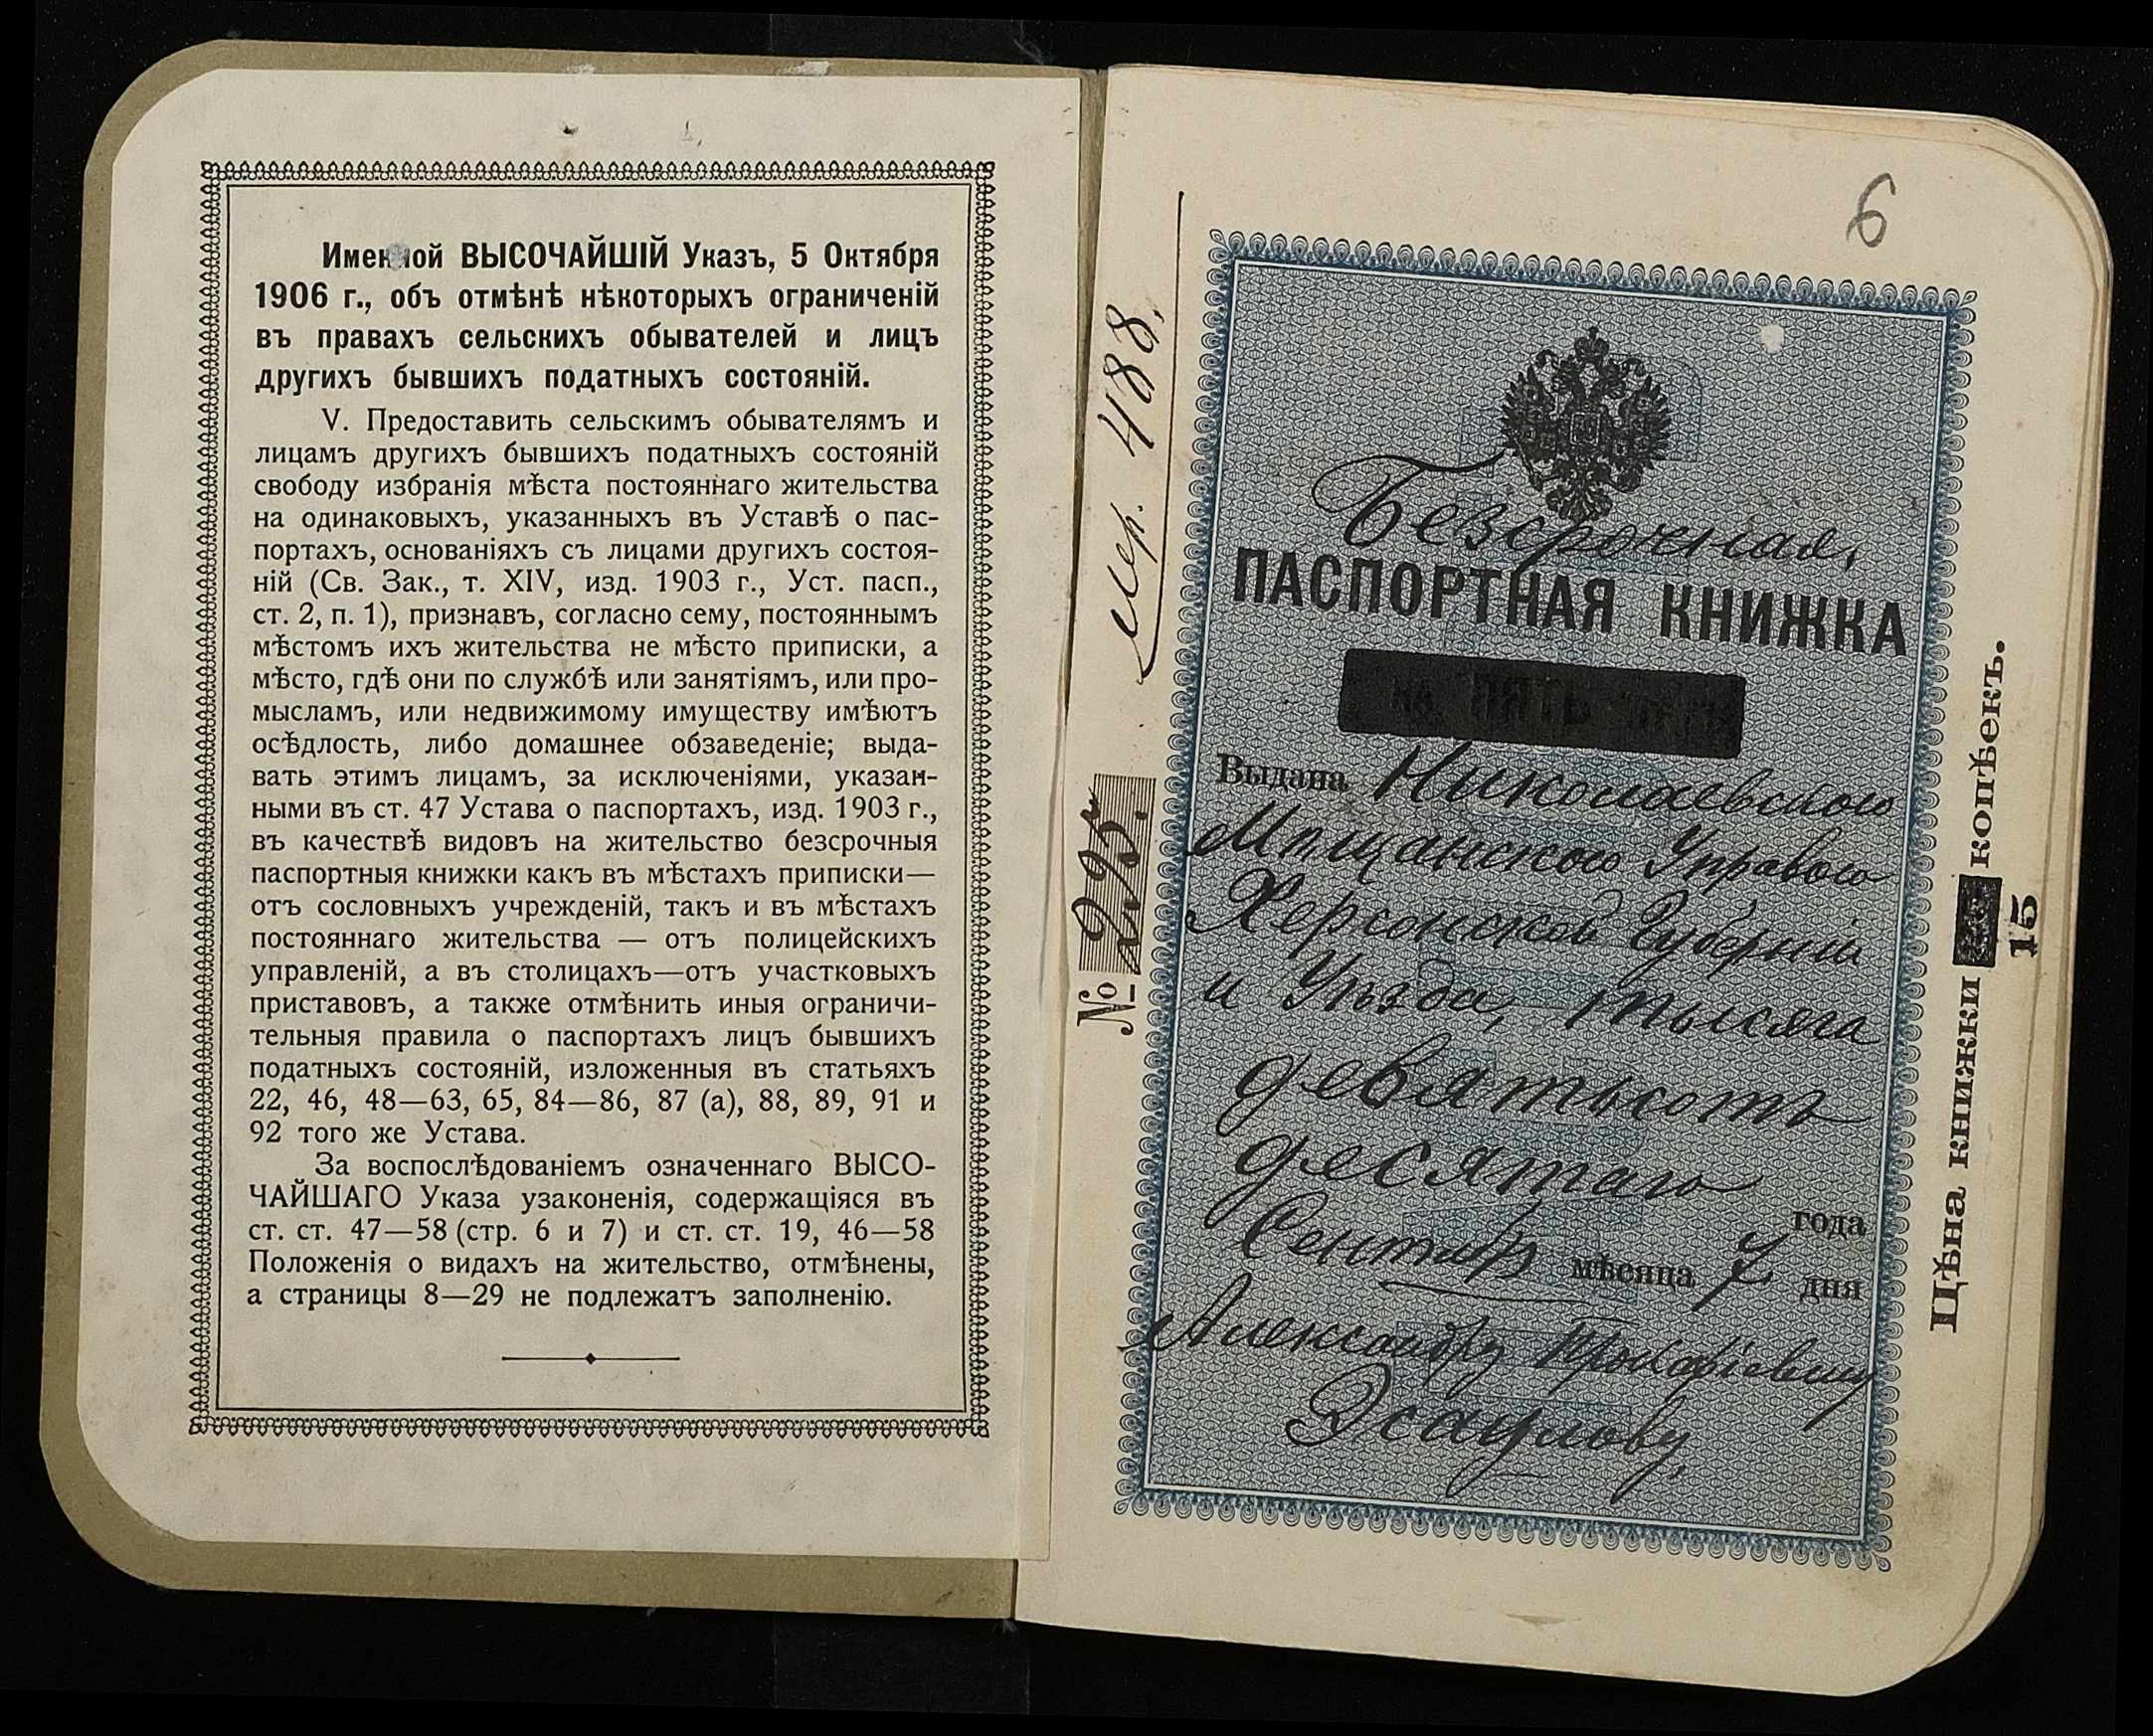 Именной ВЫСОЧАЙШІЙ Указъ, 5 Октября
1906 г., объ отмѣнѣ нѣкоторыхъ ограниченій
въ правахъ сельскихъ обывателей и лицъ
другихъ бывшихъ податныхъ состояній.
V. Предоставить сельскимъ обывателямъ и
лицамъ другихъ бывшихъ податныхъ состояній
свободу избранія мѣста постояннаго жительства
на одинаковыхъ, указанныхъ въ Уставѣ о пас-
портахъ, основаніяхъ съ лицами другихъ состоя-
ній (Св. Зак., т. XIV, изд. 1903 г., Уст. пасп.,
ст. 2, п. 1), признавъ, согласно сему, постояннымъ
мѣстомъ ихъ жительства не мѣсто приписки, а
мѣсто, гдѣ они по службѣ или занятіямъ, или про-
мысламъ, или недвижимому имуществу имѣютъ
осѣдлость, либо домашнее обзаведеніе; выда-
вать этимъ лицамъ, за исключеніями, указан-
ными въ ст. 47 Устава о паспортахъ, изд. 1903 г.,
въ качествѣ видовъ на жительство безсрочныя
паспортныя книжки какъ въ мѣстахъ приписки—
отъ сословныхъ учрежденій, такъ и въ мѣстахъ
постояннаго жительства — отъ полицейскихъ
управленій, а въ столицахъ—отъ участковыхъ
приставовъ, а также отмѣнить иныя ограничи-
тельныя правила о паспортахъ лицъ бывшихъ
податныхъ состояній, изложенныя въ статьяхъ
22, 46, 48—63, 65, 84—86, 87 (а), 88, 89, 91 и
92 того же Устава.
За воспослѣдованіемъ означеннаго ВЫСО-
ЧАЙШАГО Указа узаконенія, содержащіяся въ
ст. ст. 47—58 (стр. 6 и 7) и ст. ст. 19, 46—58
Положенія о видахъ на жительство, отмѣнены,
а страницы 8—29 не подлежатъ заполненію.
6
488.
№ 295.
Безсрочная,
ПАСПОРТНАЯ КНИЖКА
на ПЯТЬ лѣтъ
Выдана Николаевского
Мѣщанского Управою
Херсонской Губерніи
и Уѣзда, тысяча
девятьсотъ
десятаго года
Сентябр мѣсяца 7 дня
Александру Прокофіевичу
Эсаулову,
Цѣна книжки 15 копѣекъ.